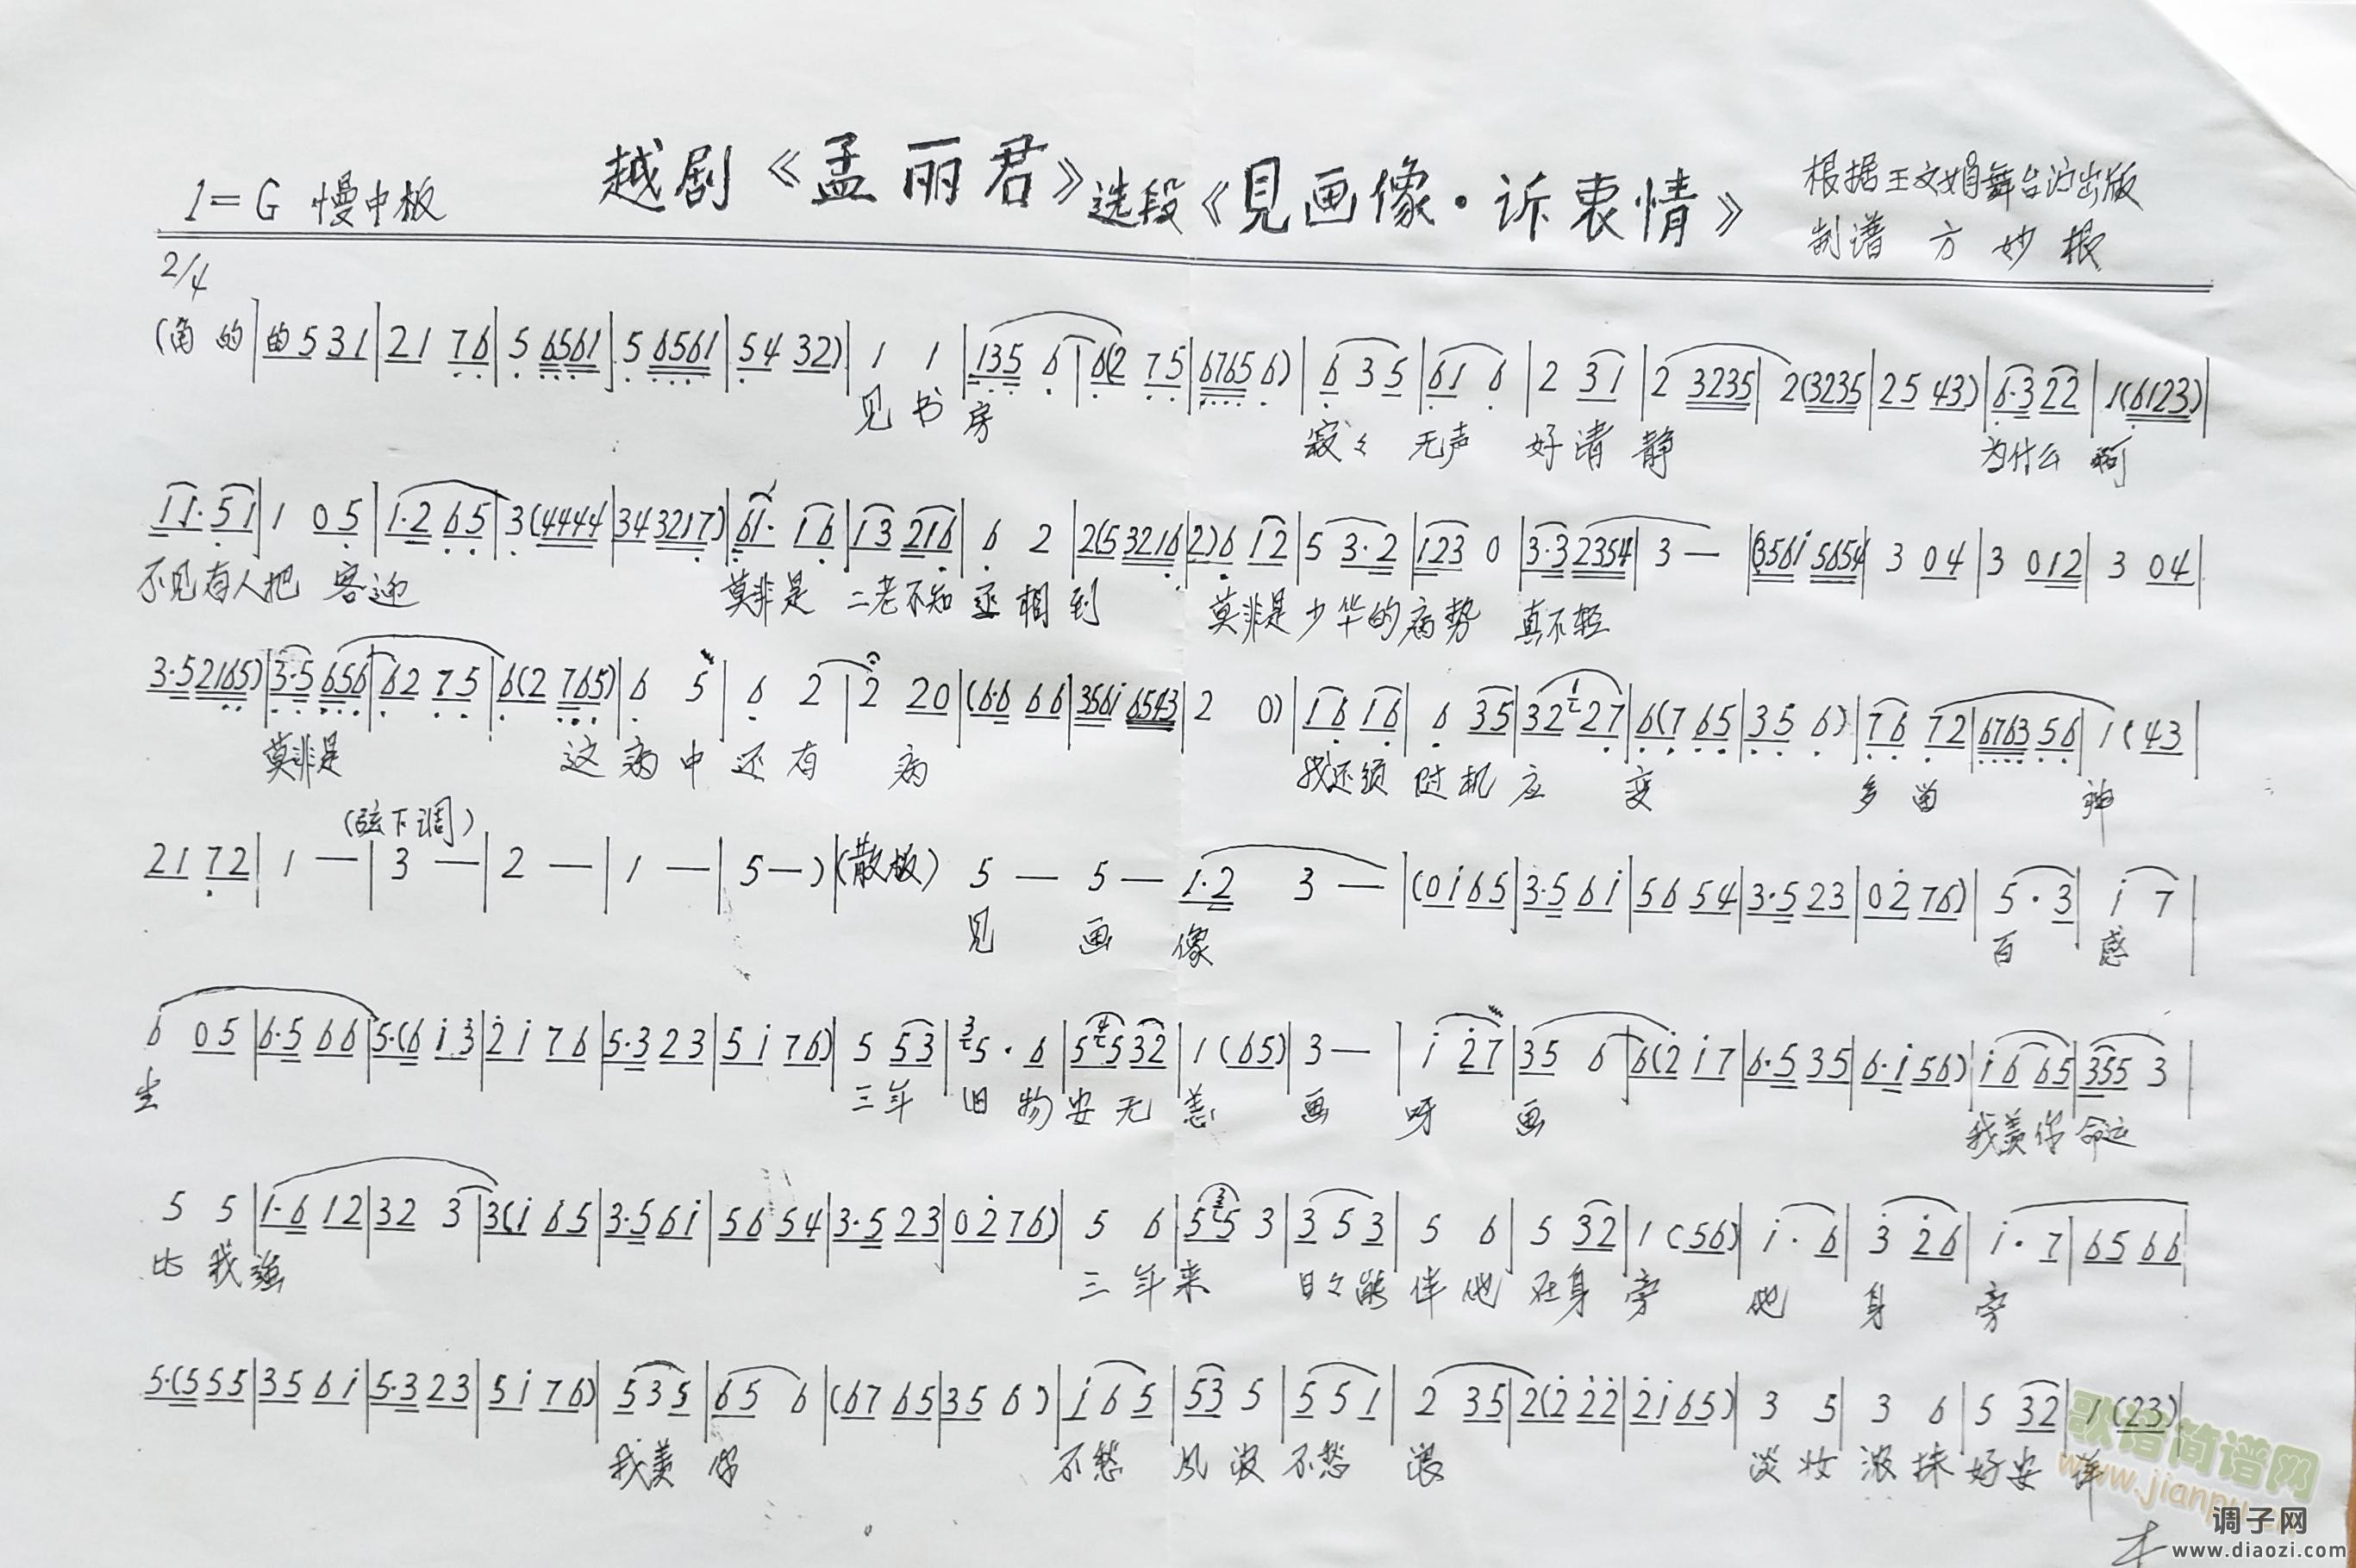 越剧《孟丽君》选段《見画像·诉衷情》
根据王文娟舞台演出版
1=G 慢中板
制谱 方妙根
2/4
(角 的|的531|21 76|5 6561|5 6561|54 32)|1 1|135 6|6(2 75|6765 6)|6 35|61 6|2 31|2 3235|2(3235|25 43)|6·3 22|1(6123)|
见书房 寂々 无声 好清静 为什么 啊
11·51|1 05|1·2 65|3(4444|34 3217)|61· 16|13 216|6 2|2(5 3216|2)6 12|5 3·2|123 0|3·3 2354|3 —|(356i 5654|3 04|3 012|3 04|
不见有人把 客迎 莫非是 二老不知 丞相到 莫非是少华的病势 真不轻
3·5 2165)|3·5 656|62 75|6(2 765)|6 5|6 2|2 20|(6·6 66|356i 6543|2 0)|16 16|6 35|32 1 27|6(7 65|35 6)|76 72|6763 56|1(43|
莫非是 这病中还有 病 我还须 随机应 变 多留 神
(弦下调)
21 72|1 —|3 —|2 —|1 —|5 —)|(散板) 5 — 5 — 1·2 3 —|(0i 65|3·5 6i|56 54|3·5 23|02 76)|5·3|i 7|
见 画 像 百 感
6 05|6·5 66|5·(6 i3|2i 76|5·3 23|5i 76)|5 53|3 5·6|5 4 5 32|1(65)|3 —|i 27|35 6|6(2 i7|6·5 35|6·i 56)|i6 65|355 3|
生 三年 旧物安无恙 画 呀 画 我羡你命运
5 5|1·6 12|32 3|3(i 65|3·5 6i|56 54|3·5 23|02 76)|5 6|5 3 5 3|3 53|5 6|5 32|1(56)|i·6|3 26|i·7|65 66|
比我强 三年来 日々能伴他在身旁 他 身 旁
5·(5 55|35 6i|5·3 23|5i 76)|535|65 6|(67 65|35 6)|i65|53 5|551|2 35|2(2 22|2i 65)|3 5|3 6|5 32|1(23)|
我羡 你 不愁 风波 不愁 浪 淡妆浓抹好安 详
歌谱简谱网
www.jianpu
调子网
www.diaozi.com